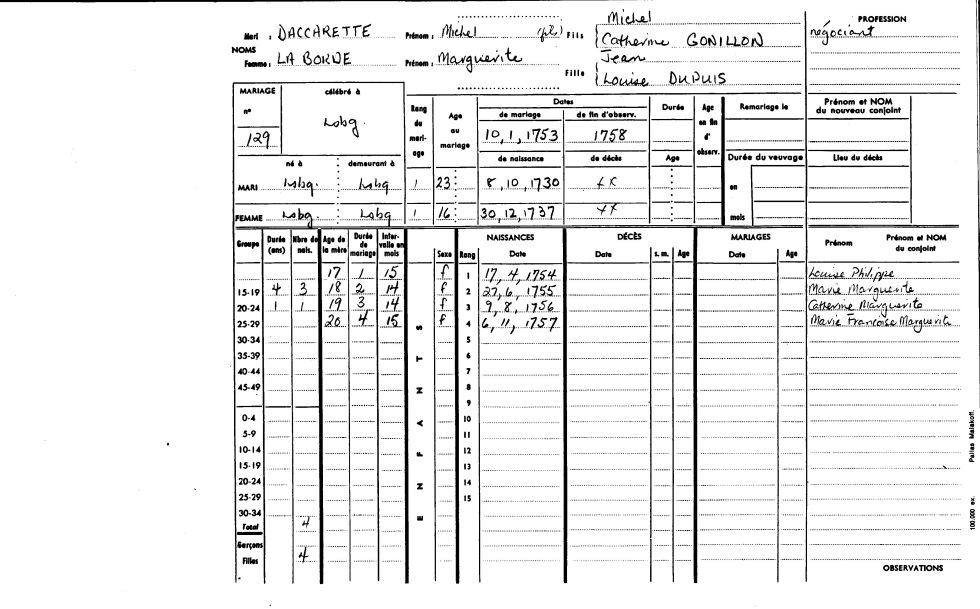 Michel
Mari : DACCARETTE Prénom : Michel (pl.) Fils PROFESSION
Catherine GONILLON négociant
NOMS
Femme : LA BORDE Prénom : Marguerite Jean
Fille
Louise DUPUIS
MARIAGE célébré à Rang du mariage Age au mariage Dates Durée Age en fin d' observ. Remariage le Prénom et NOM du nouveau conjoint
n° de mariage de fin d'observ.
129 Lobg. 10, 1, 1753 1758
né à demeurant à de naissance de décès Age Durée du veuvage Lieu du décès
MARI Lobg. Lobg 1 23 8, 10, 1730 en
FEMME Lobg. Lobg 1 16 30, 12, 1737 mois
Groupe Durée (ans) Nbre de nais. Age de la mère Durée de mariage Intervalle en mois ENFANTS NAISSANCES DÉCÈS MARIAGES Prénom Prénom et NOM du conjoint
Sexe Rang Date Date s. m. Age Date Age
17 1 15 f 1 17, 4, 1754 Louise Philippe
15-19 4 3 18 2 14 f 2 27, 6, 1755 Marie Marguerite
20-24 1 1 19 3 14 f 3 9, 8, 1756 Catherine Marguerite
25-29 20 4 15 f 4 6, 11, 1757 Marie Francoise Marguerite
30-34 5
35-39 6
40-44 7
45-49 8
9
0-4 10
5-9 11
10-14 12
15-19 13
20-24 14
25-29 15
30-34
Total 4
Garçons
Filles 4
OBSERVATIONS
100.000 ex. Pailles Malakoff.